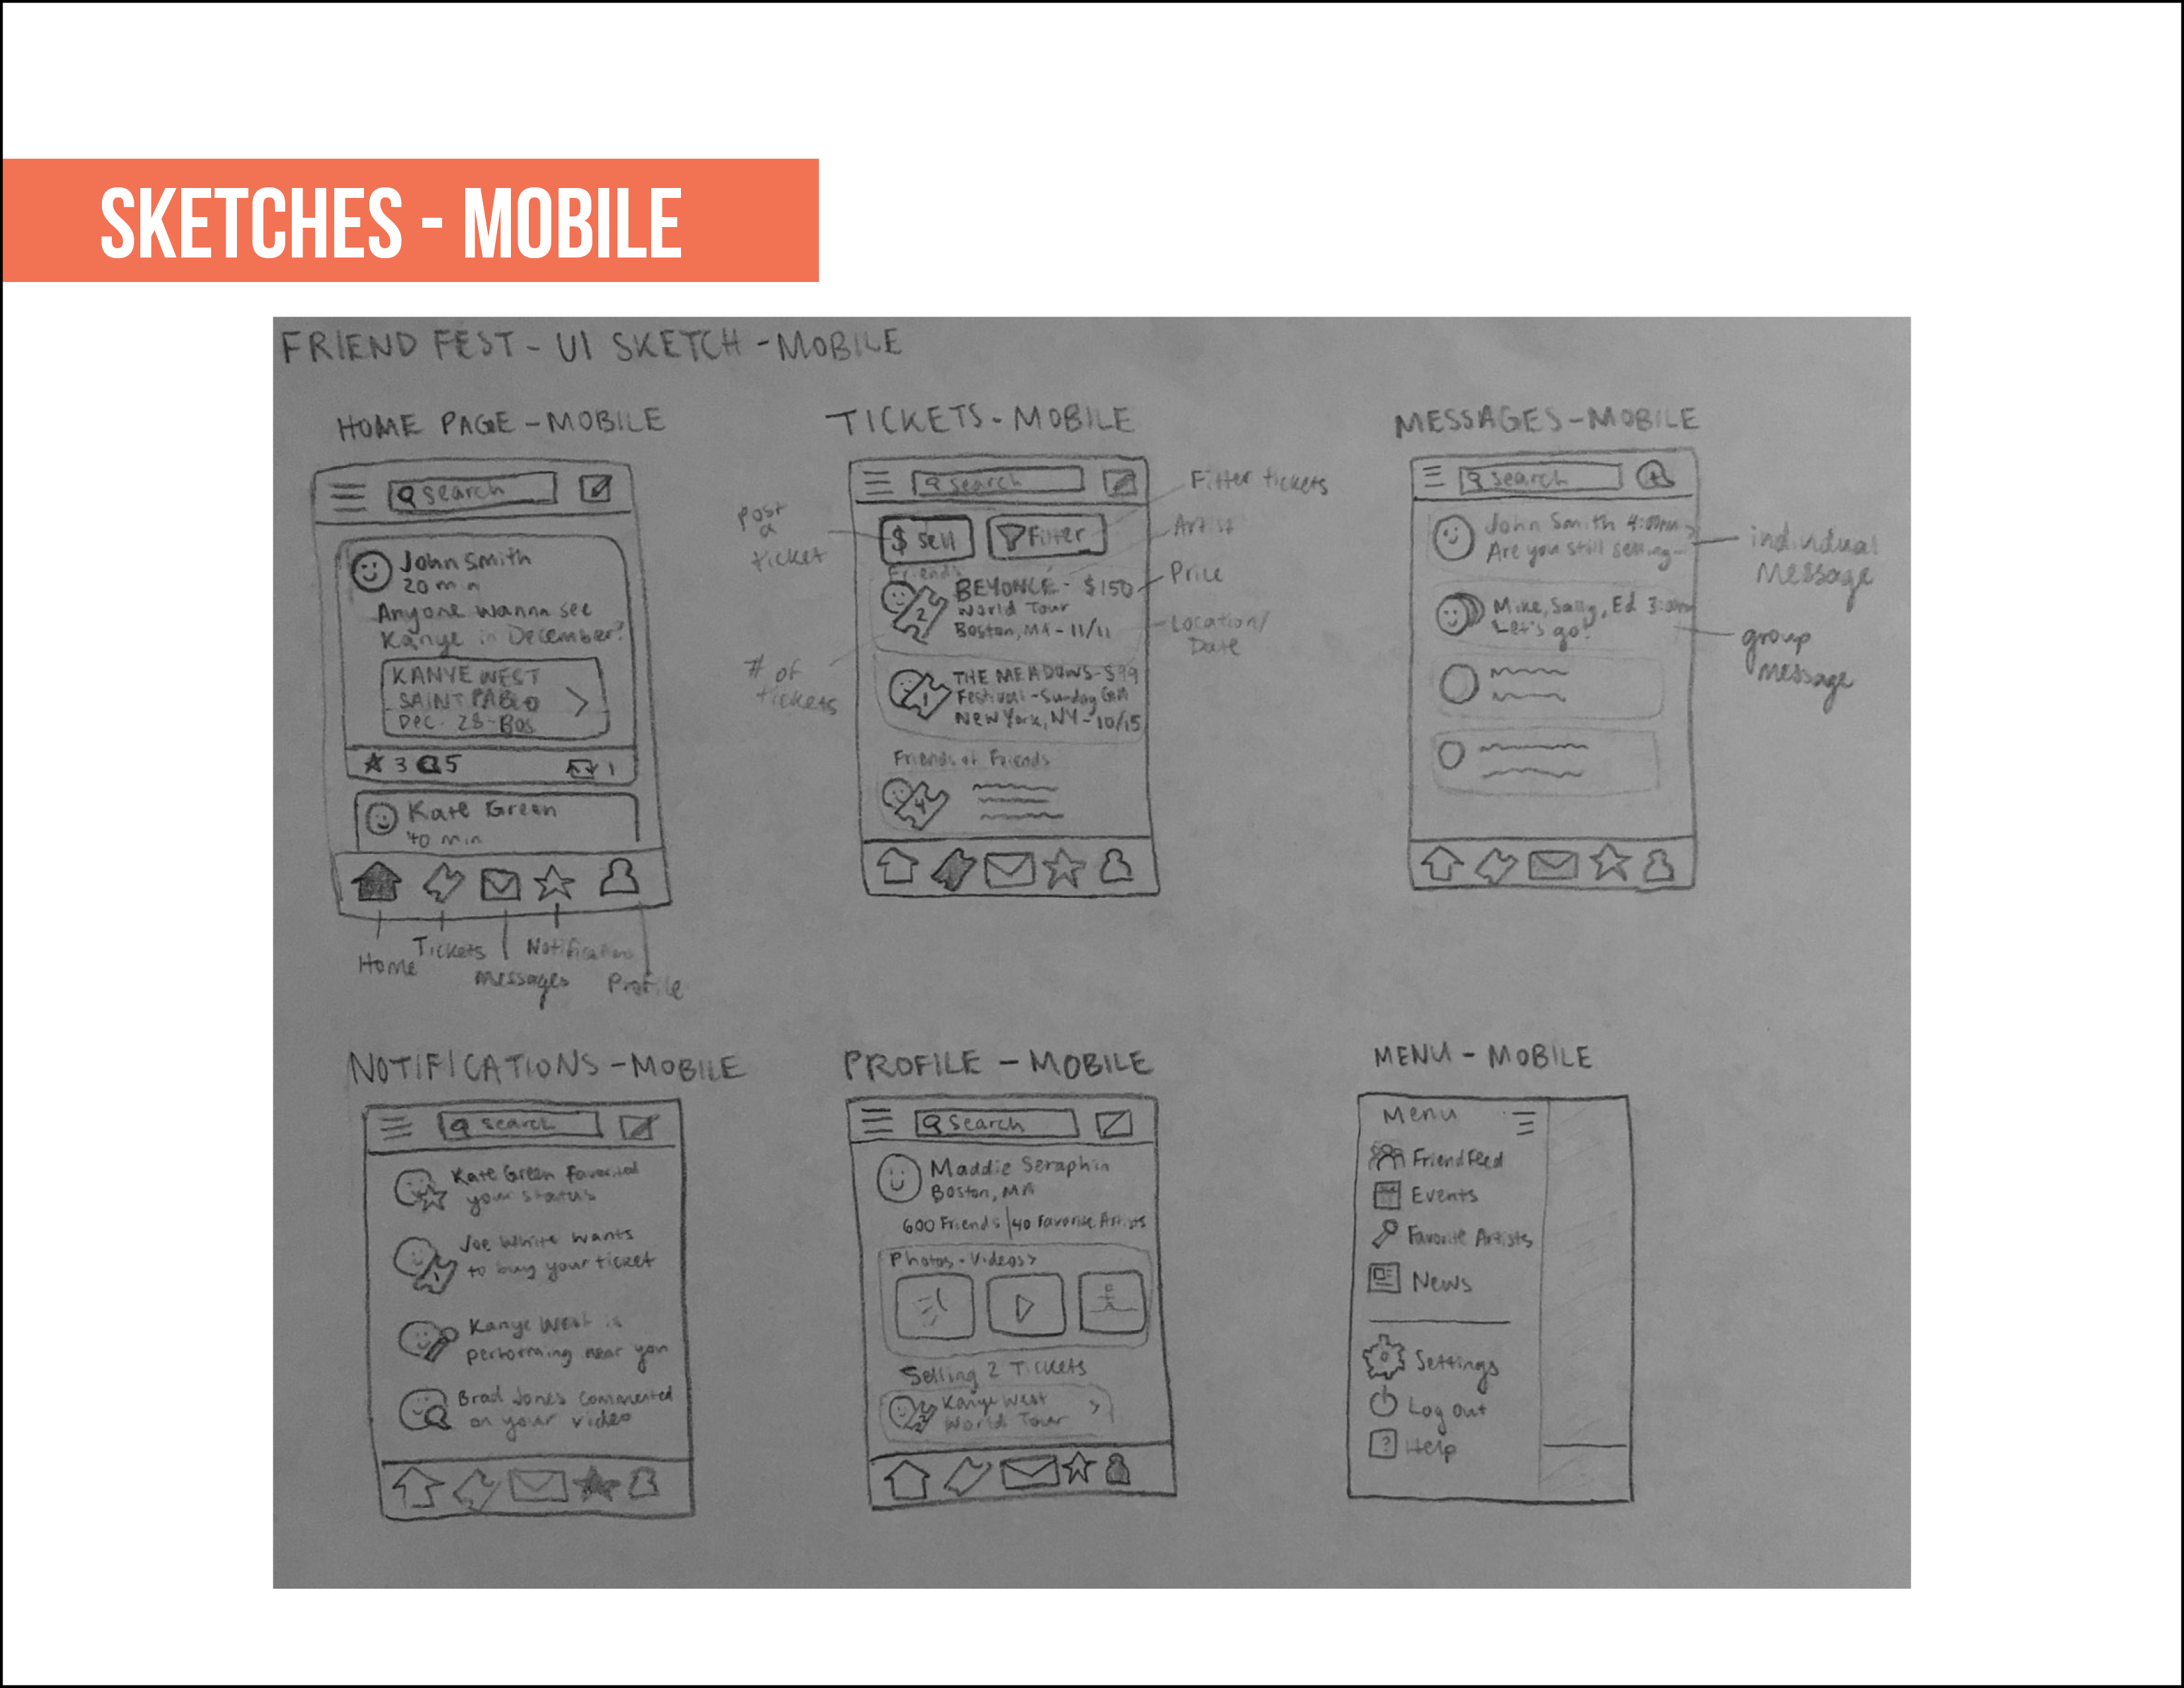 SKETCHES - MOBILE
FRIEND FEST - UI SKETCH - MOBILE
HOME PAGE - MOBILE
Search
John Smith
20 min
Anyone wanna see
Kanye in December?
KANYE WEST
SAINT PABLO
Dec. 28 - BOS
3 5 1
Kate Green
40 min
Home
Tickets
Messages
Notifications
Profile
TICKETS - MOBILE
Search
$ Sell
Filter
Friends
2
BEYONCÉ - $150
World Tour
Boston, MA - 11/11
1
THE MEADOWS - $99
Festival - Sunday GA
New York, NY - 10/15
Friends of Friends
4
Post
a
ticket
# of
tickets
Filter tickets
Artist
Price
Location/
Date
MESSAGES - MOBILE
Search
John Smith 4:00pm >
Are you still selling -
Mike, Sally, Ed 3:00pm
Let's go!
individual
message
group
message
NOTIFICATIONS - MOBILE
Search
Kate Green Favorited
your status
1
Joe White wants
to buy your ticket
Kanye West is
performing near you
Brad Jones commented
on your video
PROFILE - MOBILE
Search
Maddie Seraphin
Boston, MA
600 Friends | 40 Favorite Artists
Photos - Videos >
Selling 2 Tickets
2
Kanye West
World Tour >
MENU - MOBILE
Menu
FriendFeed
Events
Favorite Artists
News
Settings
Log out
? Help